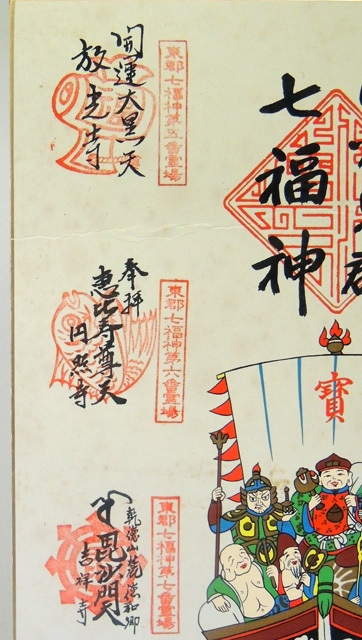 七福神
寶
東郡七福神第五番霊場
開運大黒天
放光寺
東郡七福神第六番霊場
奉拝
恵比寿尊天
円照寺
東郡七福神第七番霊場
毘沙門
吉祥寺